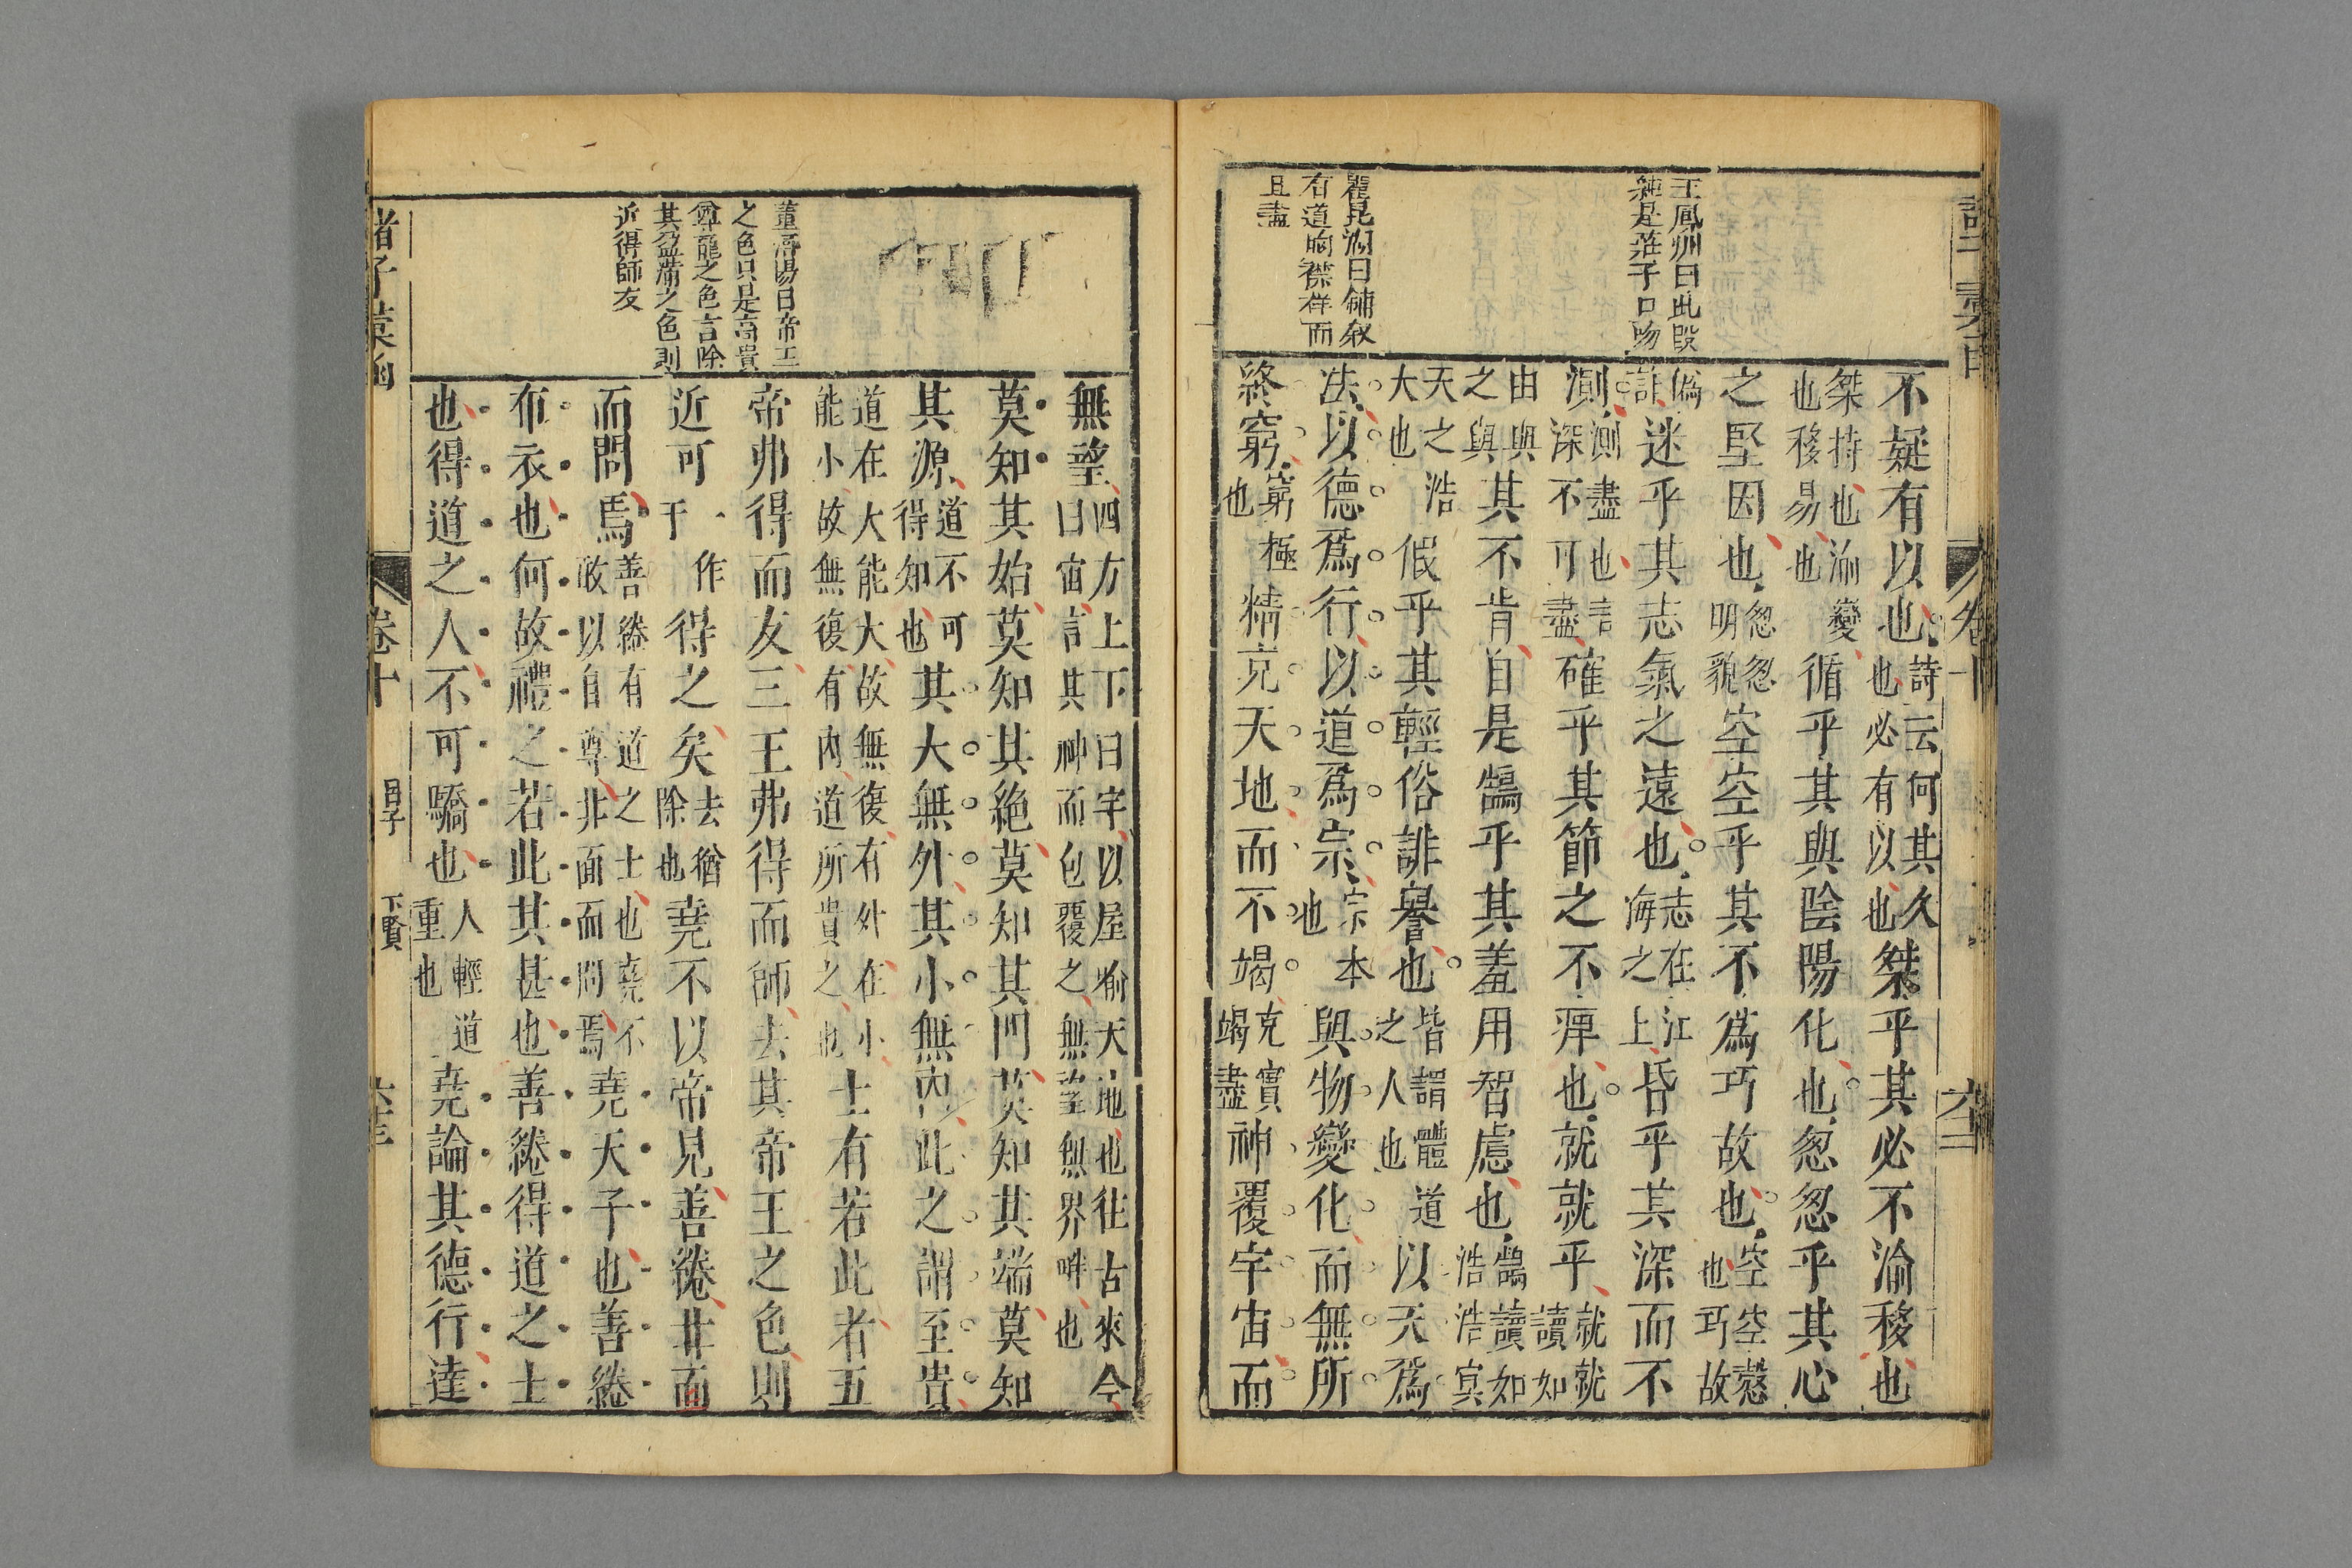 卷十
王鳳洲曰此段
純是莊子口吻
瞿昆湖曰鋪叙
有道胸襟祥而
且盡
不疑有以也詩云何其久也必有以也桀乎其必不渝移也
桀持也渝變也移易也循乎其與陰陽化也怱怱乎其心
之堅因也怱怱明貌空空乎其不為巧故也空空慤也巧故
偽詐迷乎其志氣之遠也志在江海之上昏乎其深而不
測測盡也言深不可盡確乎其節之不庳也就就乎就就讀如
由與之與其不肯自是鵠乎其羞用智慮也鵠讀如浩浩冥
天之浩大也假乎其輕俗誹譽也皆謂體道之人也以天爲
法以德爲行以道爲宗宗本也與物變化而無所
終窮窮極也精充天地而不竭充實竭盡神覆宇宙而
董潯陽曰帝王
之色只是高貴
尊寵之色言除
其盈滿之色則
近得師友
無望四方上下曰宇以屋喻天地也往古來今曰宙言其神而包覆之無望無界畔也
莫知其始莫知其絶莫知其門莫知其端莫知
其源道不可得知也其大無外其小無內此之謂至貴
道在大能大故無復有外在小能小故無復有內道所貴之也士有若此者五
帝弗得而友三王弗得而師去其帝王之色則
近可一作于得之矣去猶除也堯不以帝見善綣北面
而問焉善綣有道之士也堯不敢以自尊非面而問焉堯天子也善綣
布衣也何故禮之若此其甚也善綣得道之士
也得道之人不可驕也人輕道重也堯論其德行達
諸子彙函 卷十 呂子 下賢 六十三